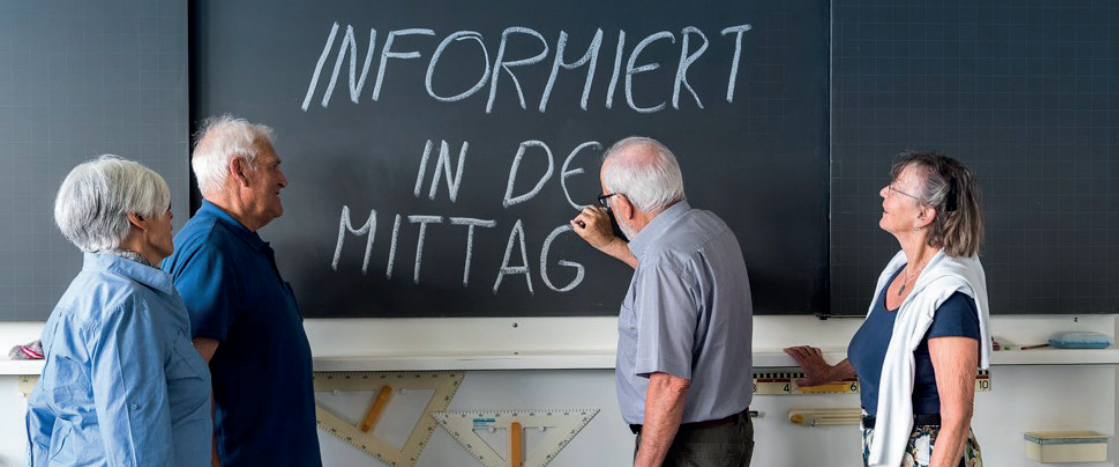 INFORMIERT
IN DE
MITTAG
4 6
10